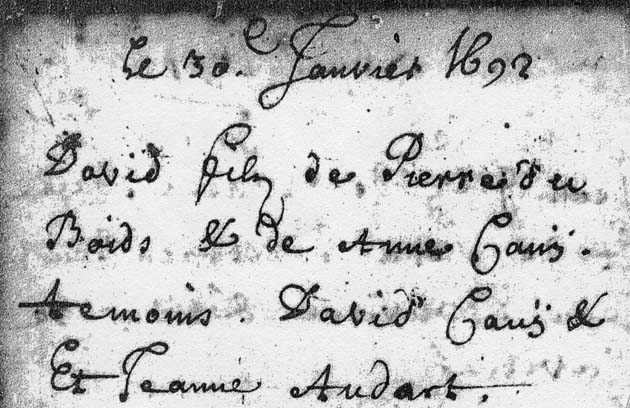 Le 30.e Janvier 1692
David filz de Pierre du
Boids & de Anne Cauÿ.
temoins. David Cauÿ &
Et Jeanne Audart.